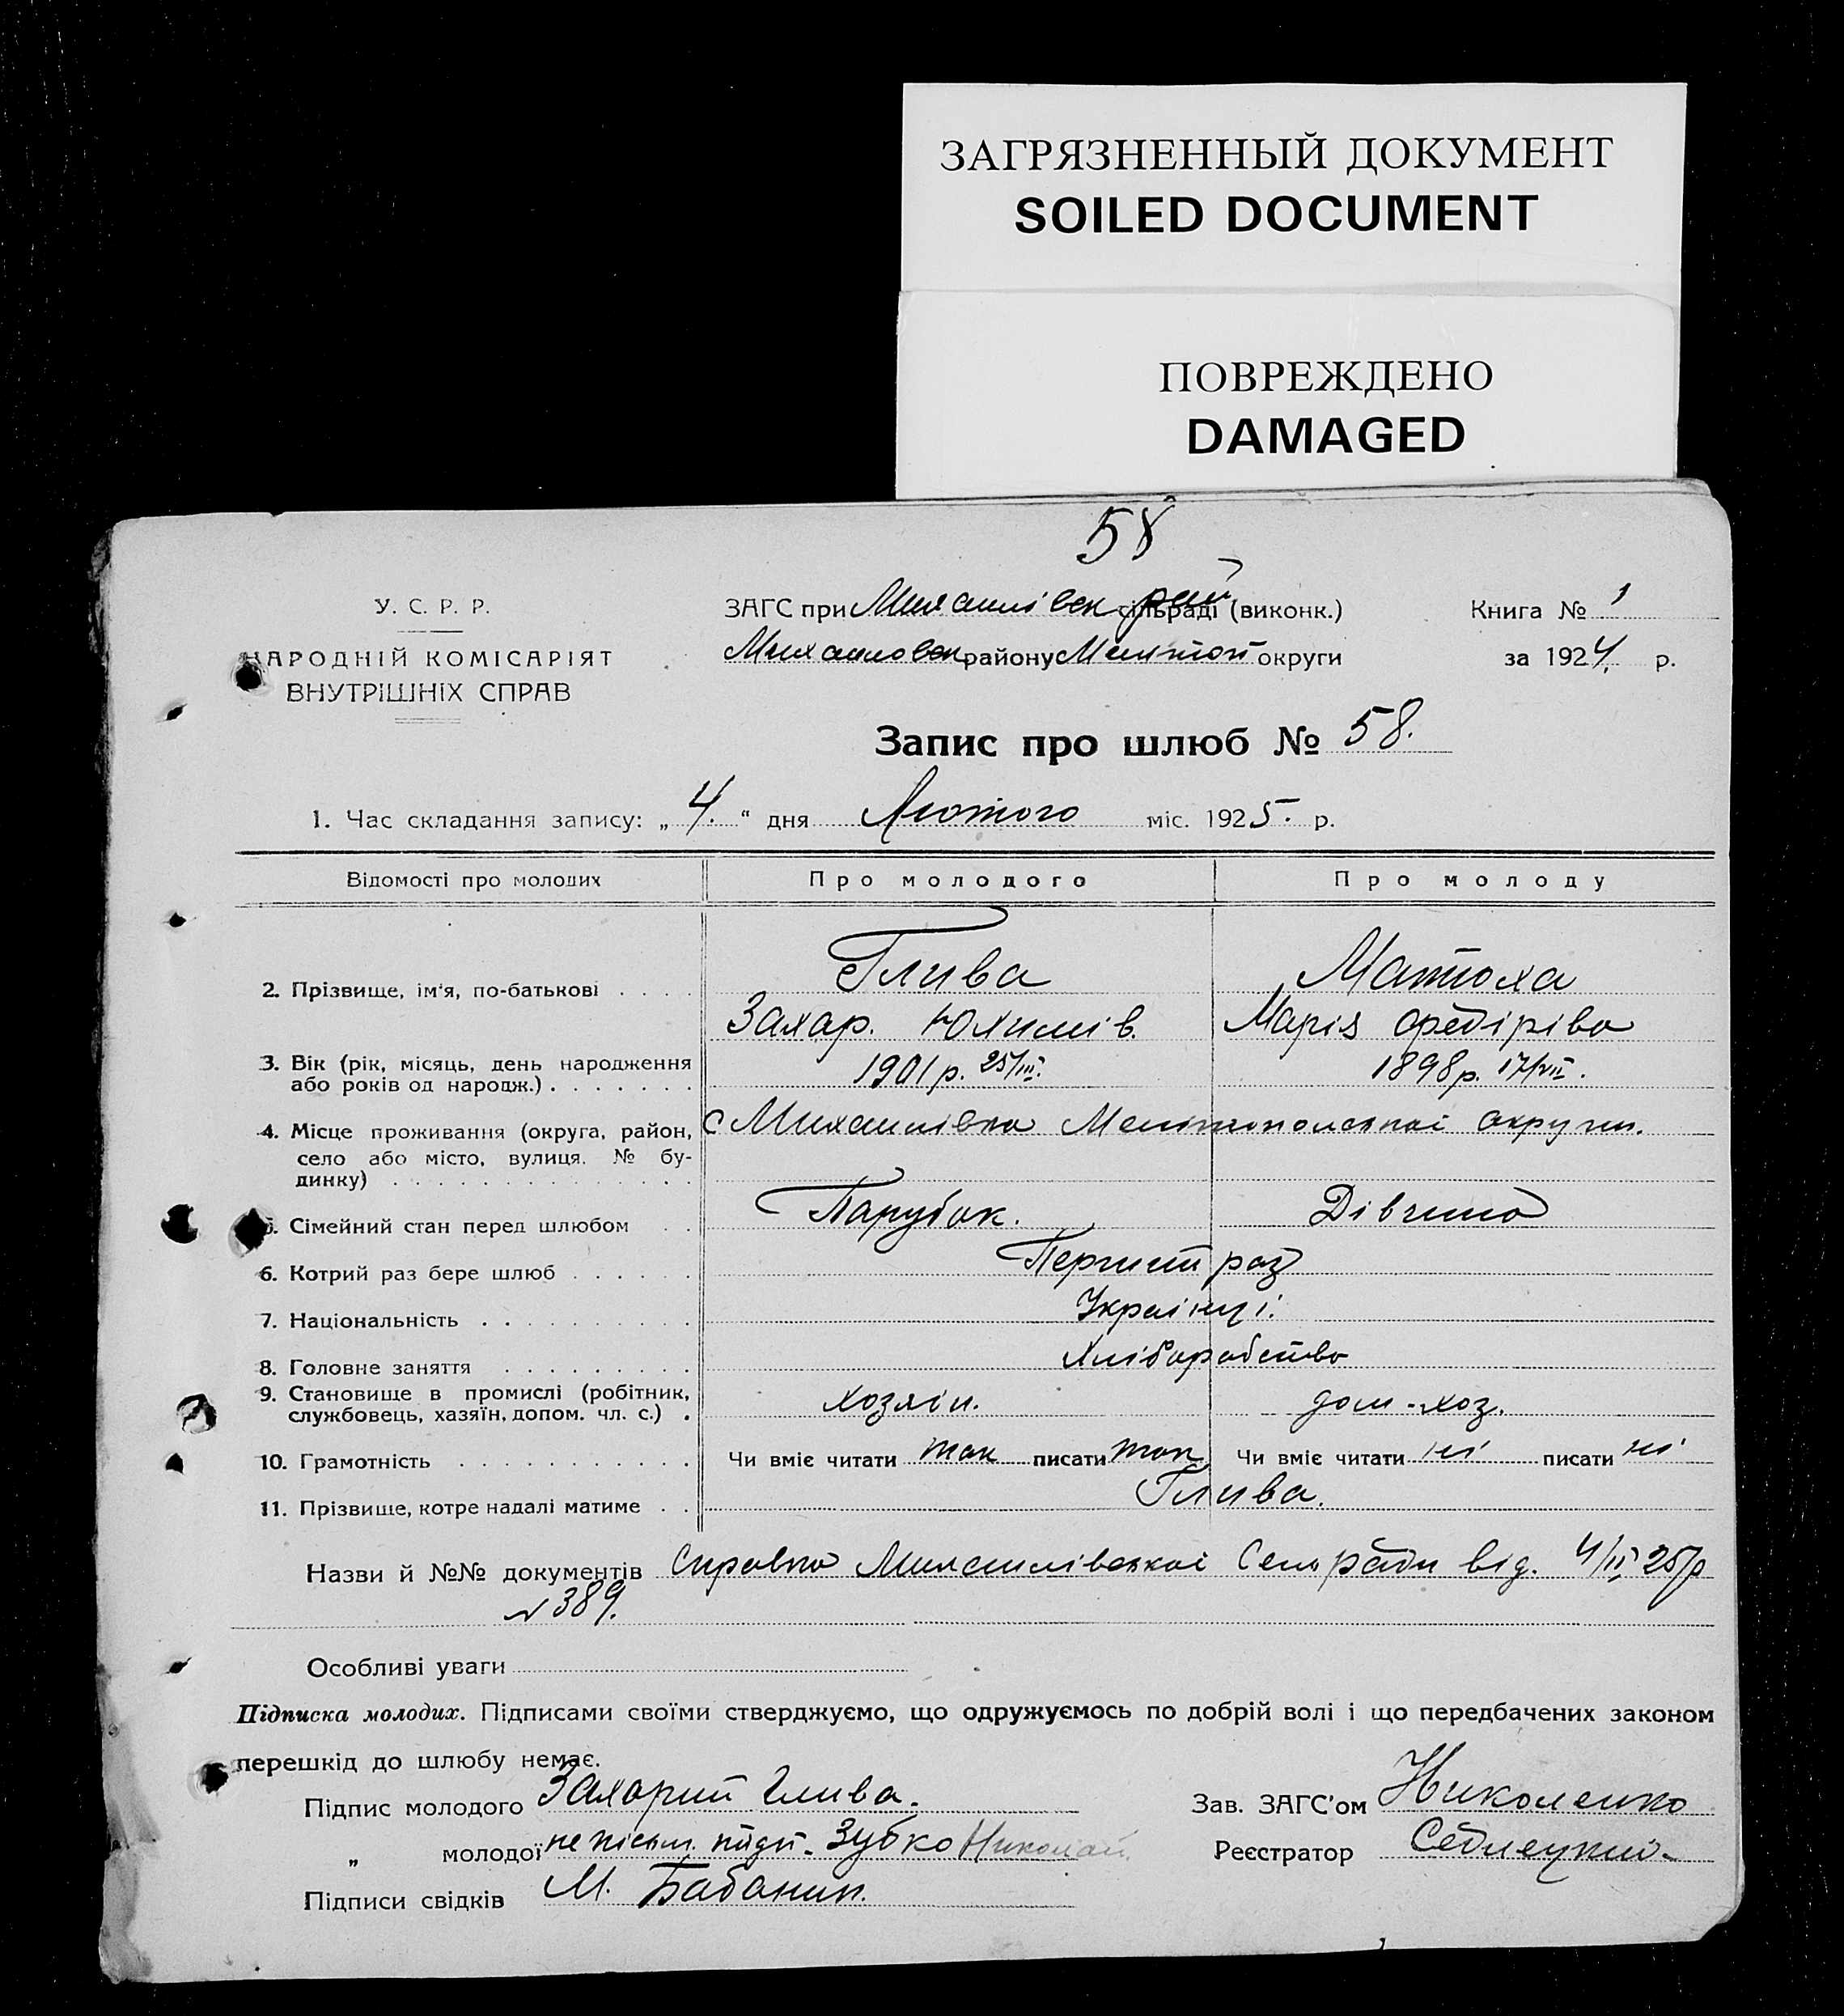 ЗАГРЯЗНЕННЫЙ ДОКУМЕНТ
SOILED DOCUMENT
ПОВРЕЖДЕНО
DAMAGED
58
У. С. Р. Р.
НАРОДНІЙ КОМІСАРІЯТ
ВНУТРІШНІХ СПРАВ
ЗАГС при Михайлівск рай сільраді (виконк.)
Михайловск району Мелітоп округи
Книга № 1
за 1924 р.
Запис про шлюб № 58.
1. Час складання запису: „ 4. “ дня Лютого міс. 1925. р.
Відомості про молодих Про молодого Про молоду
2. Прізвище, ім'я, по-батькові Глива Матюха
Захар. Юхимів. Марія Федірівa
3. Вік (рік, місяць, день народження або років од народж.) 1901 р. 25/III. 1898 р. 17/VII.
4. Місце проживання (округа, район, село або місто, вулиця. № будинку) с Михайлівка Мелітопольської округи.
5. Сімейний стан перед шлюбом Парубок. Дівчина
6. Котрий раз бере шлюб Перший раз
7. Національність Українці.
8. Головне заняття Хліборобство
9. Становище в промислі (робітник, службовець, хазяїн, допом. чл. с.) хозяін. дом-хоз.
10. Грамотність Чи вміє читати так писати так Чи вміє читати ні писати ні
11. Прізвище, котре надалі матиме Глива.
Назви й №№ документів Справка Михайлівської Сельради від. 4/II 25 р
№ 389.
Особливі уваги
Підписка молодих. Підписами своїми стверджуємо, що одружуємось по добрій волі і що передбачених законом
перешкід до шлюбу немає.
Підпис молодого Захарий Глива.
Зав. ЗАГС'ом Николенко
„ молодої не пісьм. підп. Зубко Николай
Реєстратор Седлецкий
Підписи свідків М. Бабанин.